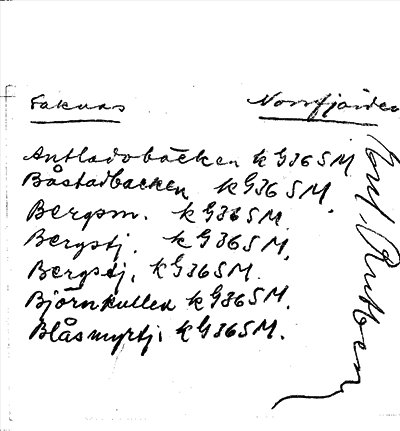 Saknas Norrfjärden
Antladobäcken k G36 SM
Båstadbacken k G36 SM.
Bergsm. k G36 SM
Bergstj. k G36 SM.
Bergstj. k G36 SM.
Björnkullen k G36 SM.
Blåsmyrtj. k G36 SM.